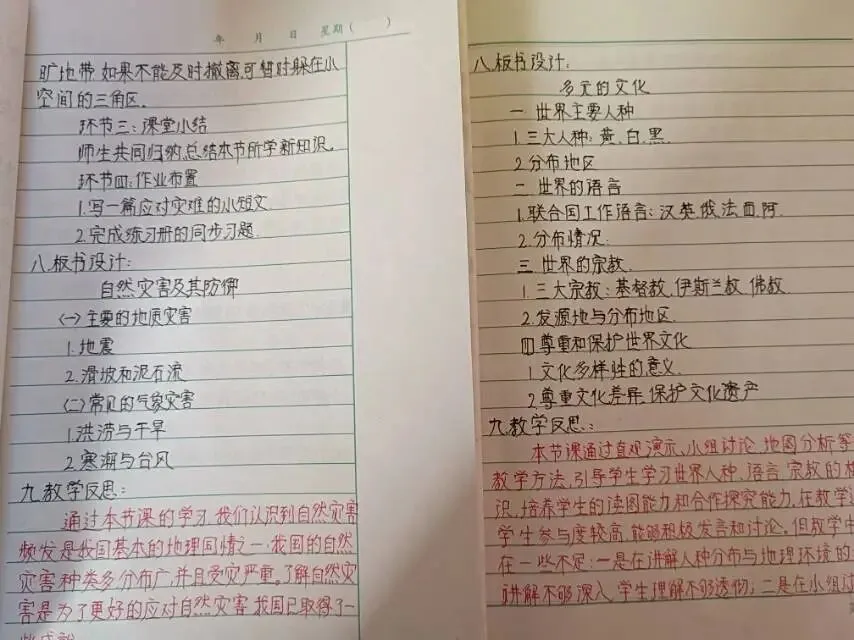 年 月 日 星期( )
旷地带,如果不能及时撤离,可暂时躲在小
空间的三角区.
环节三:课堂小结
师生共同归纳,总结本节所学新知识.
环节四:作业布置
1.写一篇应对灾难的小短文.
2.完成练习册的同步习题.
八.板书设计:
自然灾害及其防御
(一)主要的地质灾害
1.地震
2.滑坡和泥石流
(二)常见的气象灾害
1.洪涝与干旱
2.寒潮与台风
九.教学反思:
通过本节课的学习,我们认识到自然灾害
频发是我国基本的地理国情之一.我国的自然
灾害种类多分布广,并且受灾严重.了解自然灾
害是为了更好的应对自然灾害.我国已取得了一
八.板书设计:
多元的文化
一.世界主要人种
1.三大人种:黄.白.黑.
2.分布地区
二.世界的语言
1.联合国工作语言:汉.英.俄.法.西.阿.
2.分布情况.
三.世界的宗教.
1.三大宗教:基督教.伊斯兰教.佛教.
2.发源地与分布地区.
四.尊重和保护世界文化
1.文化多样性的意义.
2.尊重文化差异.保护文化遗产
九.教学反思:
本节课通过直观演示、小组讨论、地图分析等
教学方法,引导学生学习世界人种、语言、宗教的
识,培养学生的读图能力和合作探究能力,在教学
学生参与度较高,能够积极发言和讨论.但教学
在一些不足:一是在讲解人种分布与地理环境的
讲解不够深入,学生理解不够透彻;二是在小组